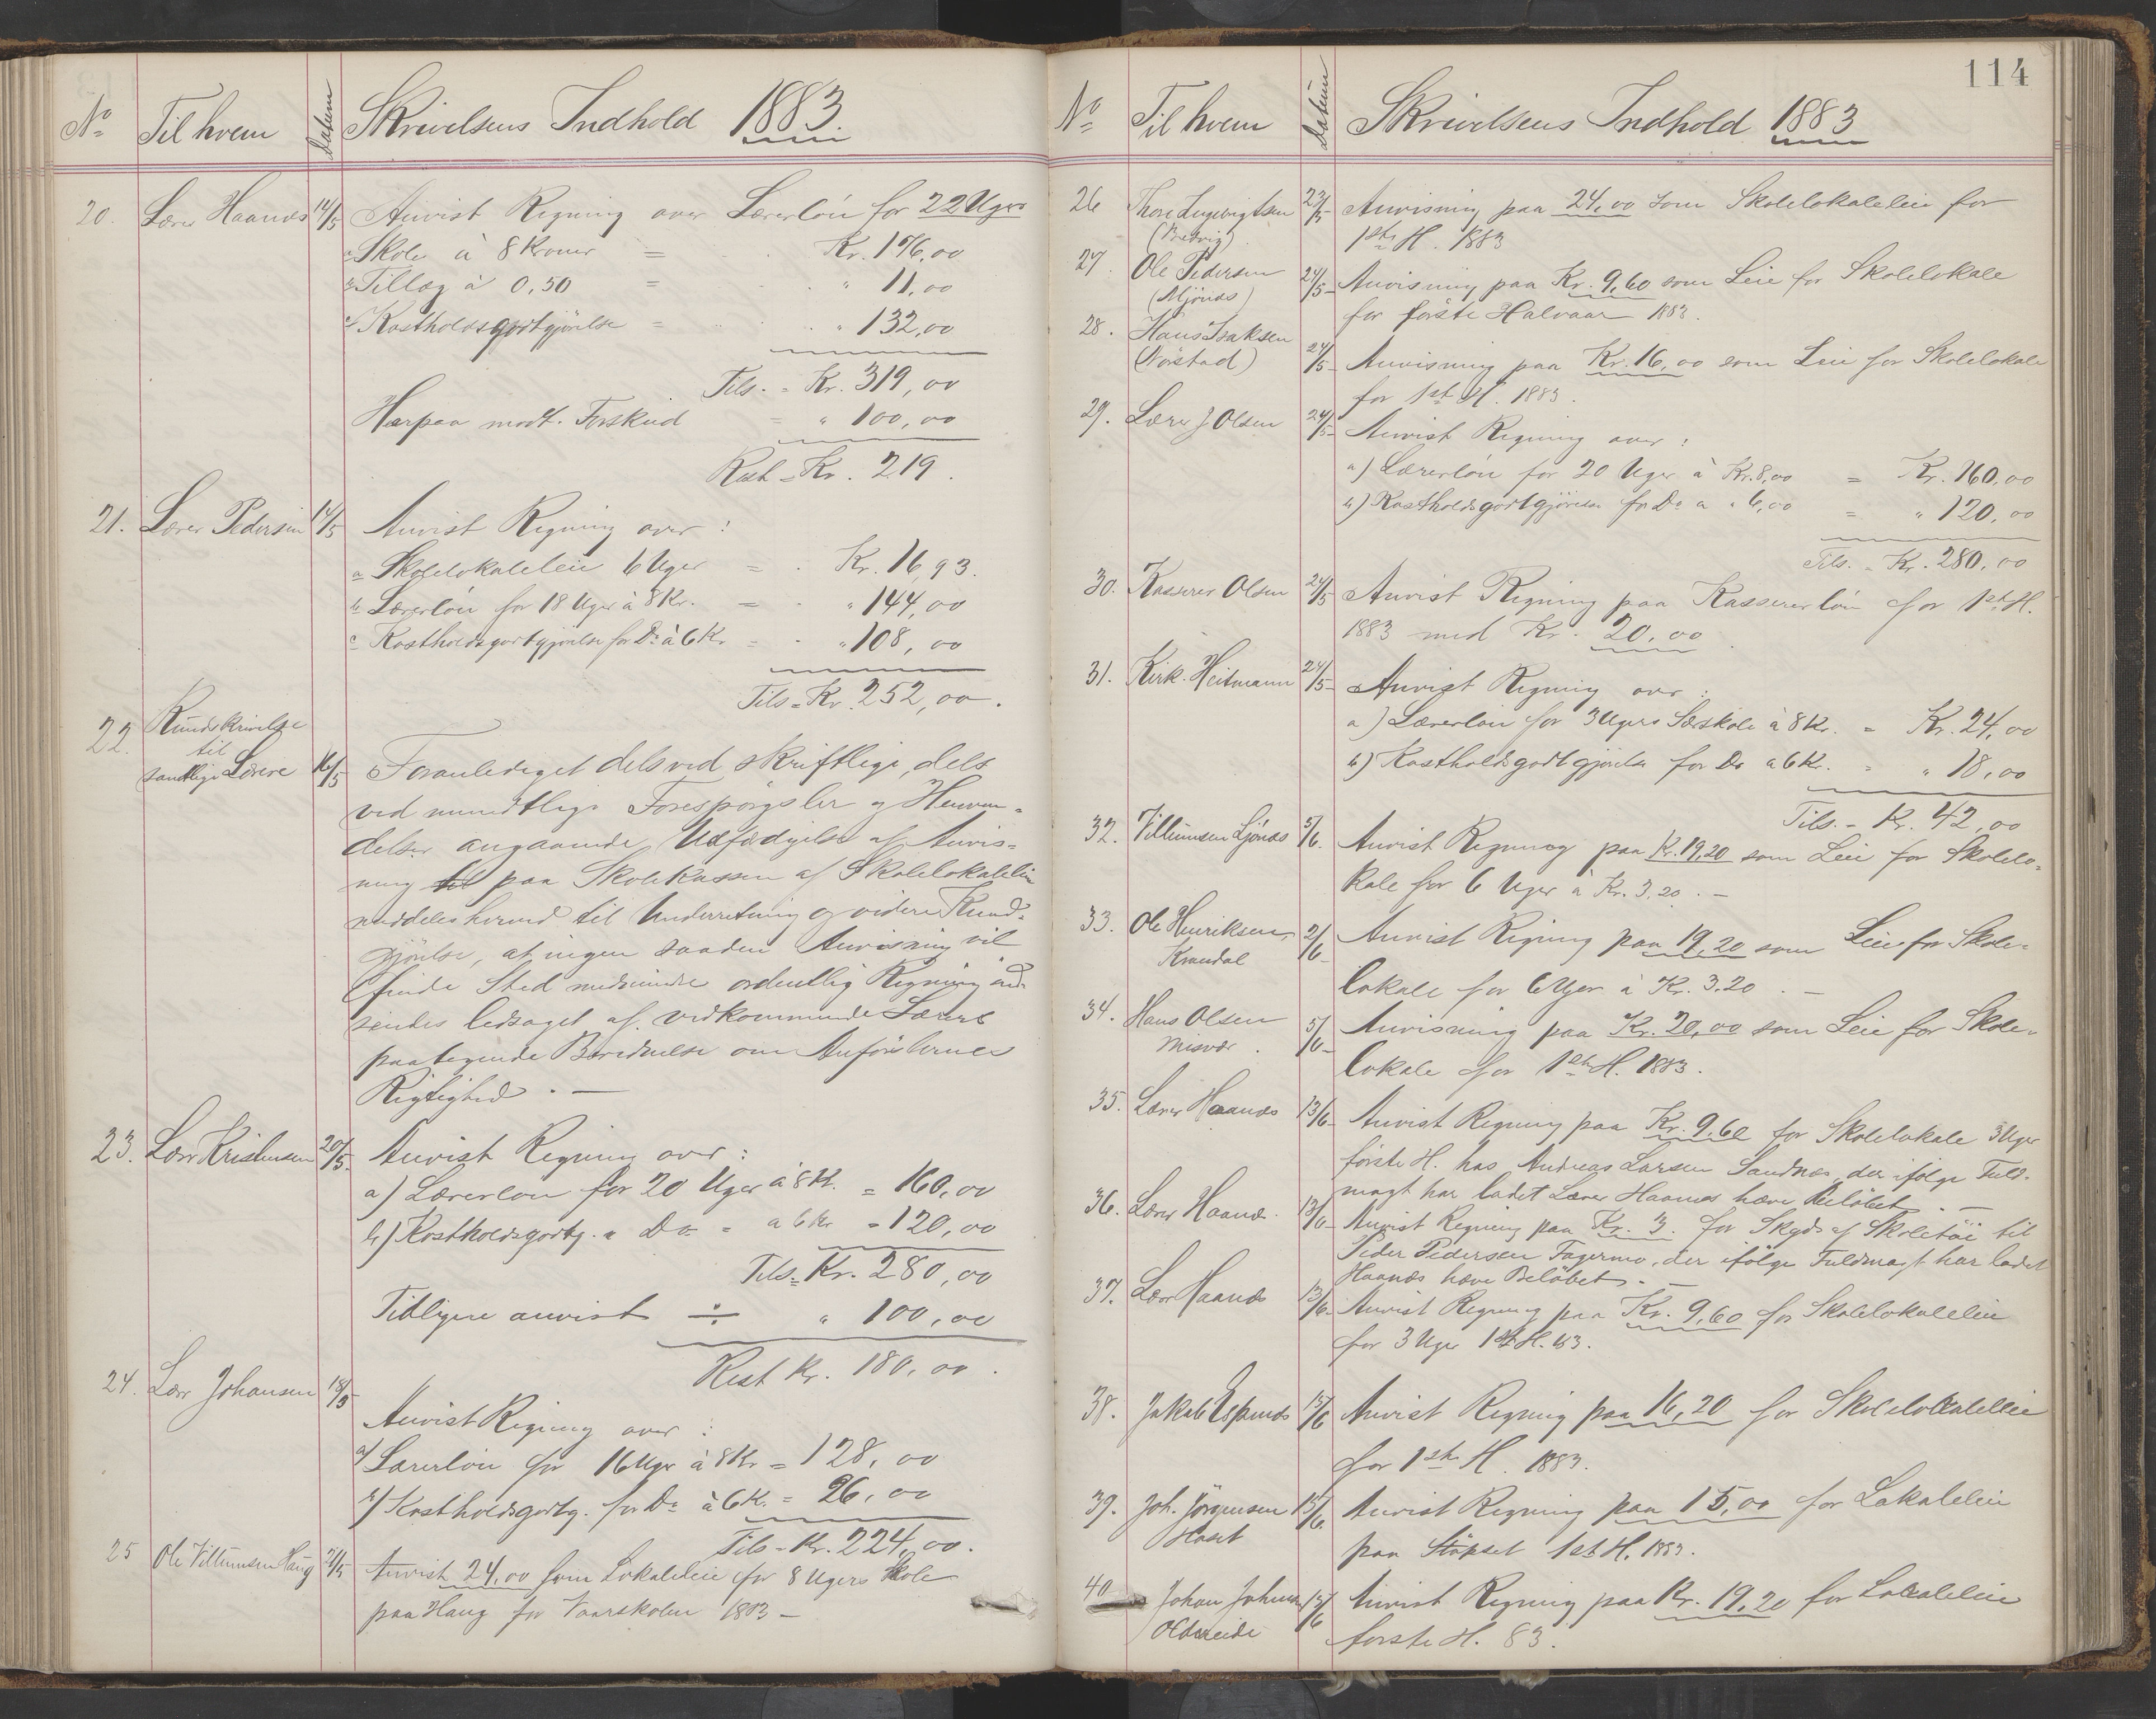 No Til hvem Datum Skrivelsens Indhold 1883.
20. Lærer Haanæs 14/5 Anvist Regning over Lærerløn for 22 Uger
a Skole à 8 Kroner = Kr. 176,00
b Tillæg à 0,50 = " 11,00
c Kostholdsgodtgjörelse = " 132,00
Tils. = Kr. 319,00
Herpaa modt. Forskud = " 100,00
Rest = Kr. 219.
21. Lærer Pedersen 14/5 Anvist Regning over :
a Skolelokaleleie 6 Uger = Kr. 16,93.
b Lærerløn for 18 Uger à 8 Kr. = " 144,00
c Kostholdsgodtgjörelse for Do à 6 Kr = " 108,00
Tils = Kr. 252,00.
22. Rundskrivelse
til
samtlige Lærere 16/5 Foranlediget dels ved skriftlige, dels
ved mundtlige Forespörgsler og Henven-
delser angaaende Udfærdigelse af Anvis-
ning til paa Skolekassen af Skolelokaleleie
meddeles herved til Underretning og videre Kund-
gjörelse, at ingen saadan Anvisning vil
finde Sted medmindre ordentlig Regning ind-
sendes ledsaget af vedkommende Lærers
paategnede Bevidnelse om Anförslernes
Rigtighed. —
23. Lærer Kristensen 20/5 Anvist Regning over :
a) Lærerløn for 20 Uger à 8 Kr. = 160,00
b) Kostholdsgodtg. " Do = à 6 Kr = 120,00
Tils. = Kr. 280,00
Tidligere anvist ÷ " 100,00
Rest Kr. 180,00.
24. Lærer Johansen 18/5
Anvist Regning over :
a) Lærerløn for 16 Uger à 8 Kr = 128,00
b) Kostholdsgodtg. for Do à 6 Kr. = 96,00
Tils = Kr. 224,00.
25 Ole Villumsen Haug 21/5 Anvist 24,00 som Lokaleleie for 8 Ugers Skole
paa Haug for Vaarskolen 1883 —
114
No Til hvem Datum Skrivelsens Indhold 1883
26 Thore Ludvigtsen 23/5 Anvisning paa 24,00 som Skolelokaleleie for
(Bredvig). 1ste H. 1883
27. Ole Pedersen 24/5 Anvisning paa Kr. 9,60 som Leie for Skolelokale
(Mjönæs) for förste Halvaar 1883.
28. Hans Isaksen
(Nöstad) 24/5 Anvisning paa Kr. 16,00 som Leie for Skolelokale
for 1ste H. 1883.
29. Lærer J Olsen 24/5 Anvist Regning over :
a) Lærerløn for 20 Uger à Kr. 8,00 = Kr. 160,00
b) Kostholdsgodtgjörelse for Do a " 6,00 = " 120,00
Tils. = Kr. 280,00
30. Kasserer Olsen 24/5 Anvist Regning paa Kassererløn for 1ste H.
1883 med Kr. 20,00.
31. Kirk. Heitmann 24/5 Anvist Regning over :
a) Lærerløn for 3 Ugers Læskole à 8 Kr. = Kr. 24,00
b) Kostholdsgodtgjörelse for Do à 6 Kr. = " 18,00
Tils. = Kr. 42,00
32. Villumsen Ljönæs 5/6. Anvist Regning paa Kr. 19,20 som Leie for Skolelo-
kale for 6 Uger à Kr. 3,20. —
33. Ole Henriksen 2/6 Anvist Regning paa 19,20 som Leie for Skole-
Kvandal lokale for 6 Uger à Kr. 3,20. —
34. Hans Olsen 5/6 Anvisning paa Kr. 20,00 som Leie for Skole-
Misvær. lokale for 1ste H. 1883.
35. Lærer Haanæs 13/6 Anvist Regning paa Kr. 9,60 for Skolelokale 3 Uger
förste H. hos Andreas Larsen Sandnæs, der ifølge Fuld-
magt har ladet Lærer Haanæs hæve Belöbet. —
36. Lærer Haanæs. 13/6 Anvist Regning paa Kr. 3. for Skyds af Skoletöi til
Peder Pedersen Fagermo, der ifølge Fuldmagt har ladet
Haanæs hæve Belöbet. —
37. Lærer Haanæs 13/6 Anvist Regning paa Kr. 9,60 for Skolelokaleleie
for 3 Uger 1ste H. 83.
38. Jakob Espenæs 15/6 Anvist Regning paa 16,20 for Skolelokaleleie
for 1ste H. 1883.
39. Joh. Jörgensen 15/6 Anvist Regning paa 15,00 for Lokaleleie
Hoset paa Støpset 1ste H. 1883.
40 Johan Johnsen 15/6 Anvist Regning paa Kr. 19,20 for Lokaleleie
Oldereide förste H. 83.